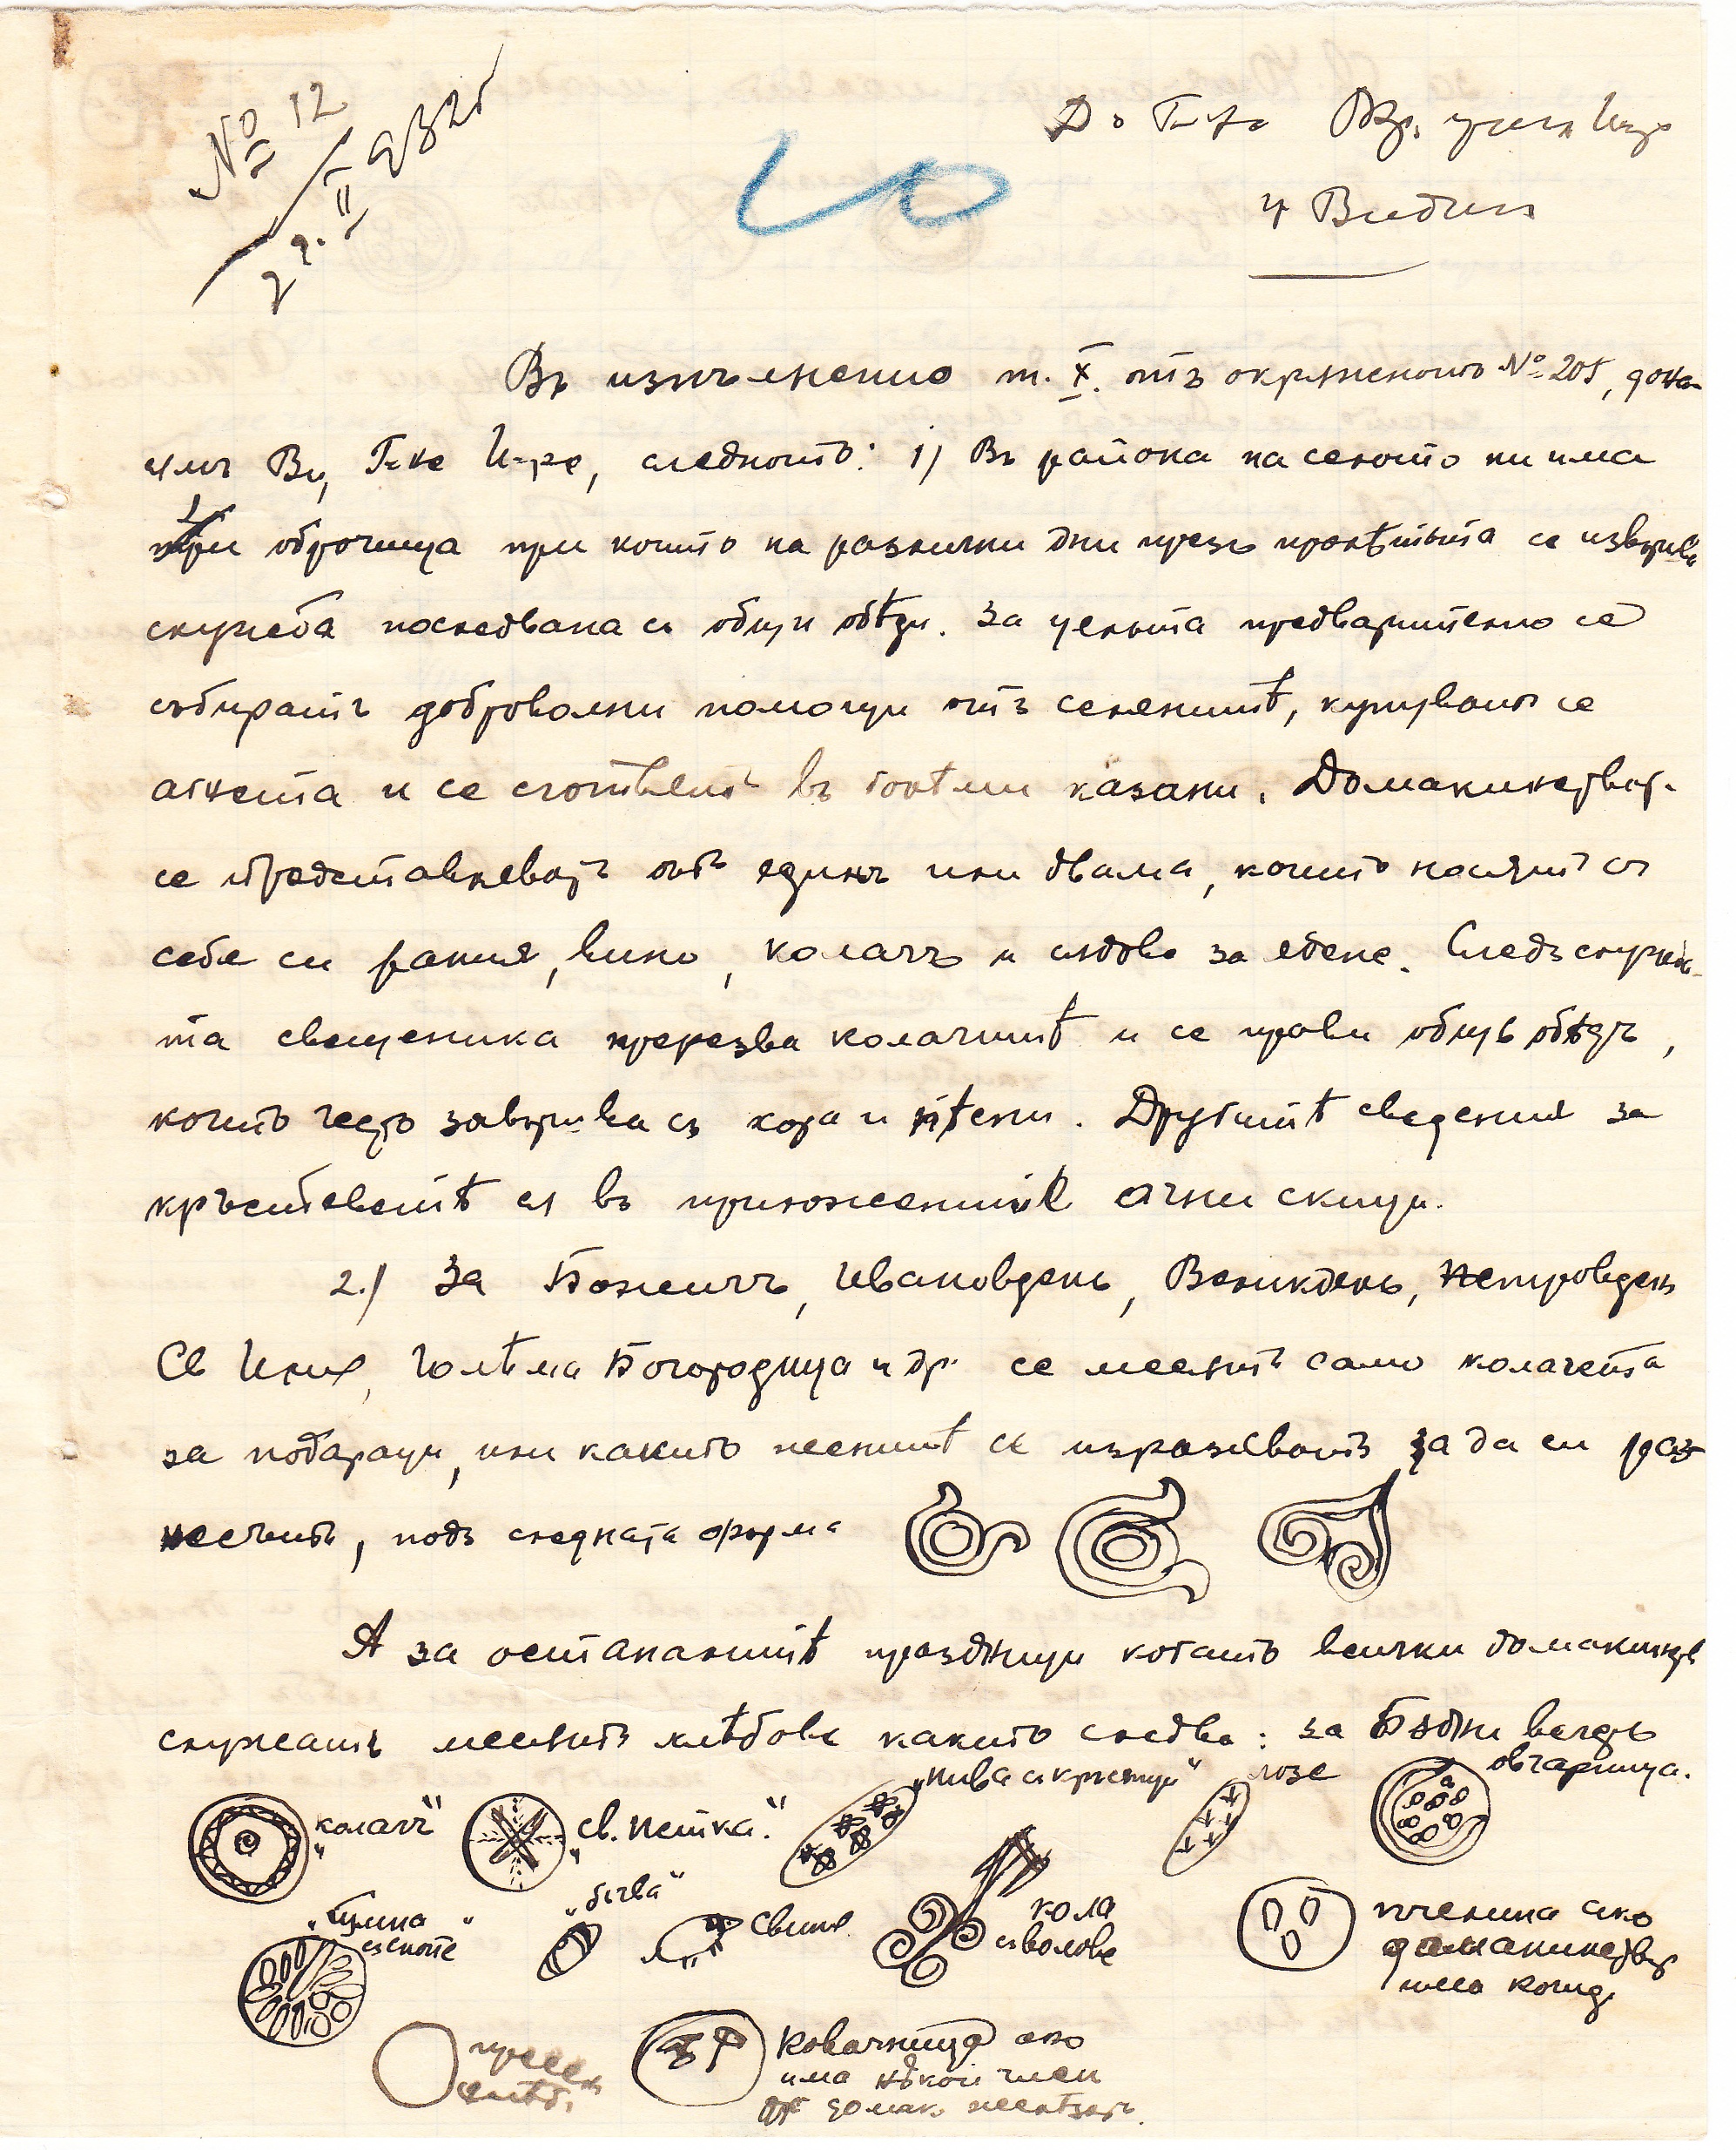 № 12
29. II 932 г
До Г-на Окр. учил. Инсп.
гр. Видинъ
Въ изпълнение т. X. отъ окржжното № 205, дона-
сямъ Ви, Г-не И-ре, следното: 1) Въ района на селото ни има
три оброчища при които на различни дни презъ пролѣтьта се извършва
служба последвана съ общи обѣди. За цельта предварително се
събиратъ доброволни помощи отъ селенитѣ, купуватъ се
агнета и се сготвятъ въ голѣми казани. Домакинствата
се представляватъ отъ единъ или двама, които носятъ съ
себе си ракия, вино, колачъ и сждове за ядене. Следъ служба-
та свещеника пререзва колачитѣ и се прави общъ обѣдъ,
които често завършва съ хора и пѣсни. Другитѣ сведения за
кръстоветѣ сж въ приложенитѣ скици.
2.) За Божичъ, Ивановдень, Великдень, Петровдень
Св Илия, Голѣма Богородица и др се месятъ само колачета
за подаръци, или както селянитѣ се изразяватъ за да си раз
несатъ, подъ следната форма
А за останалитѣ праздници когато всички домакинства
служатъ месятъ хлѣбове както следва: за Бждни вечерь
„колачъ“
„св. Петка.“
„нива съ кръстци“
лозе
овчарница.
„бъчва“
свиня
кола
съ волове
пчелина ако
домакинството
има кошер
Ковачница ако
има нѣкой член